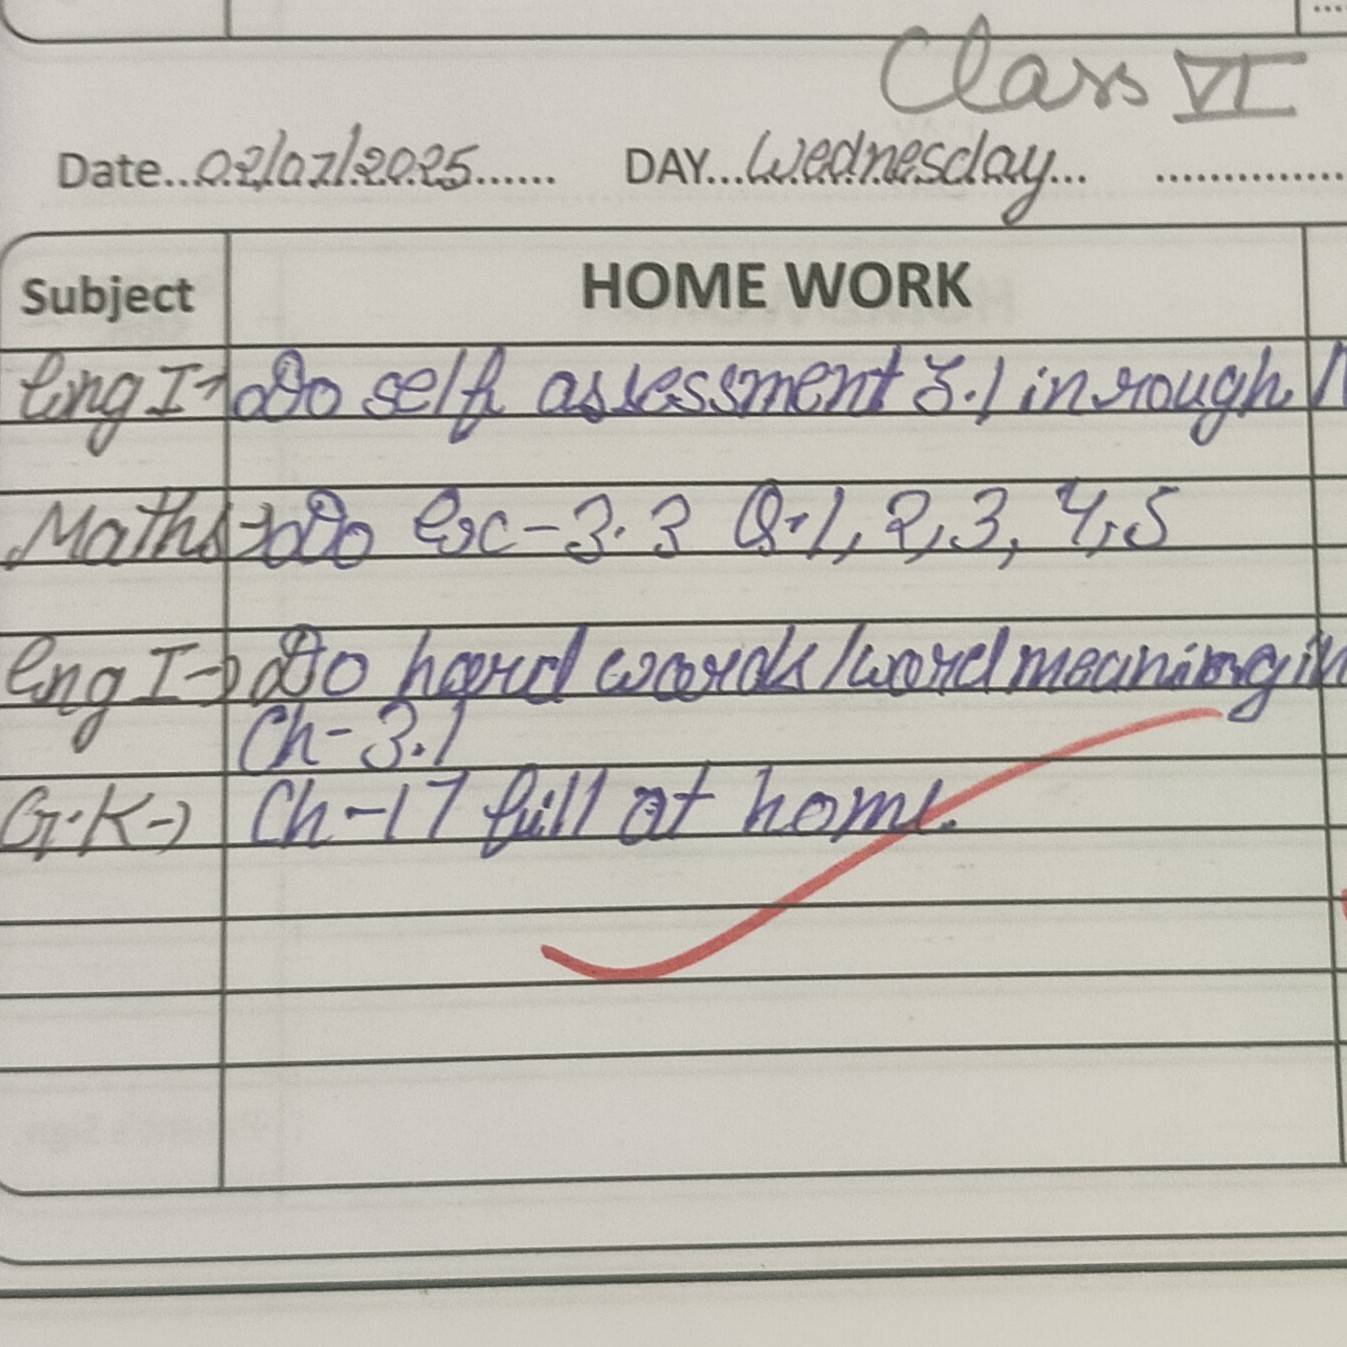 Class VI
Date...02/07/2025...... DAY...Wednesday...
Subject HOME WORK
Eng I→ Do self assessment 3.1 in rough.
Maths→ Do Ex - 3.3 Q.1, 2, 3, 4, 5
Eng I→ Do hard words/word meaning in
Ch-3.1
G.K→ Ch-17 full at home.